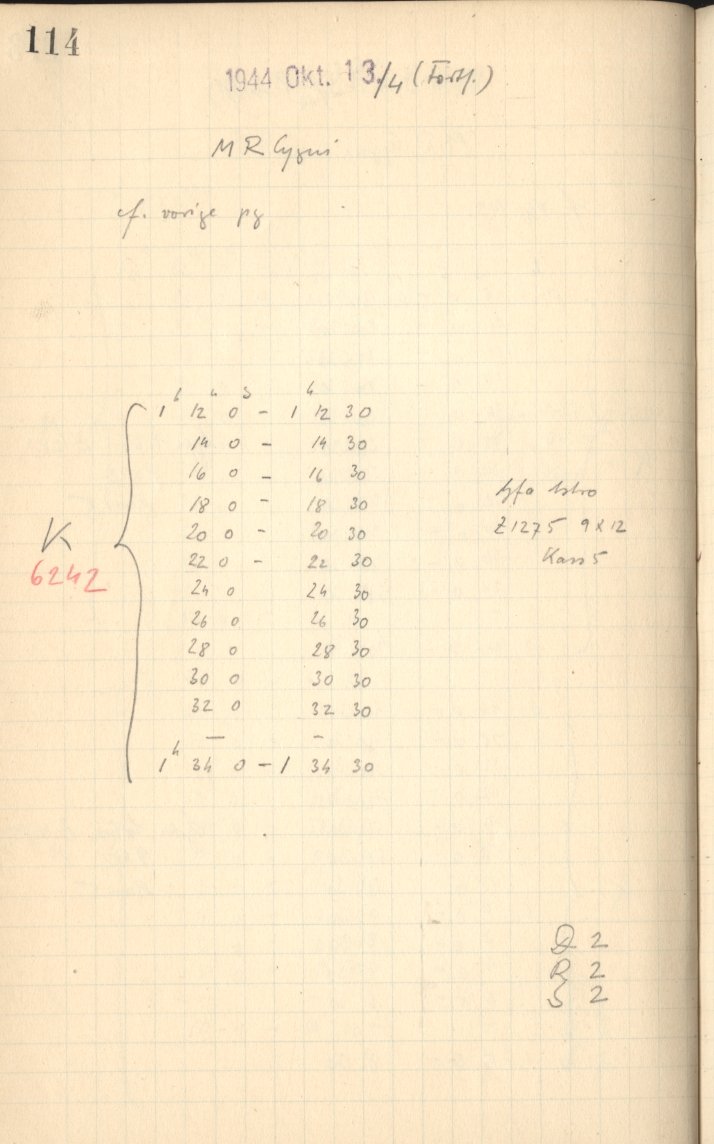 114
1944 Okt. 13/4 (Forts.)
MR Cygni
cf. vorige pg
1h 12m 0s - 1h 12 30
14 0 - 14 30
16 0 - 16 30
18 0 - 18 30
20 0 - 20 30
22 0 - 22 30
24 0 24 30
26 0 26 30
28 0 28 30
30 0 30 30
32 0 32 30
— –
1h 34 0 - 1 34 30
K
6242
Agfa Astro
Z1275 9x12
Kass 5
D 2
R 2
S 2